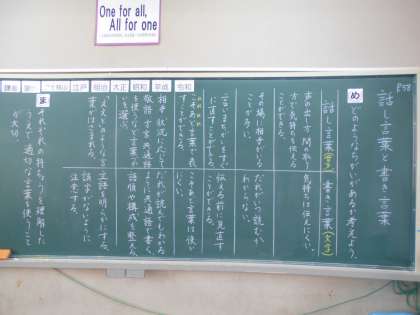 One for all,
All for one
鎌倉
室町
安土桃山
江戸
明治
大正
昭和
平成
令和
P.58
話し言葉と書き言葉
め
どのようなちがいがあるか考えよう。
話し言葉(音声)
書き言葉(文字)
声の出し方、間の取り
方で気持ちを伝える
ことができる。
気持ちは伝えにくい。
その場に相手がいる
ことが多い。
だれがいつ読むか
わからない。
言いまちがいをすぐに
直すことができる。
伝える前に見直す
ことができる。
こそあど言葉で表
すことができる。
こそあど言葉は使い
にくい。
相手、状況に応じて
敬語、方言、共通語
を使うなど言葉づかい
を選ぶ。
だれが読んでもわかる
ように共通語で書く。
語順や構成を整える。
主語を明らかにする。
誤字がないように
注意する。
言葉がはさまれる。
ま
それぞれの特ちょうを理解した
うえで、適切な言葉を使うこと
が大切